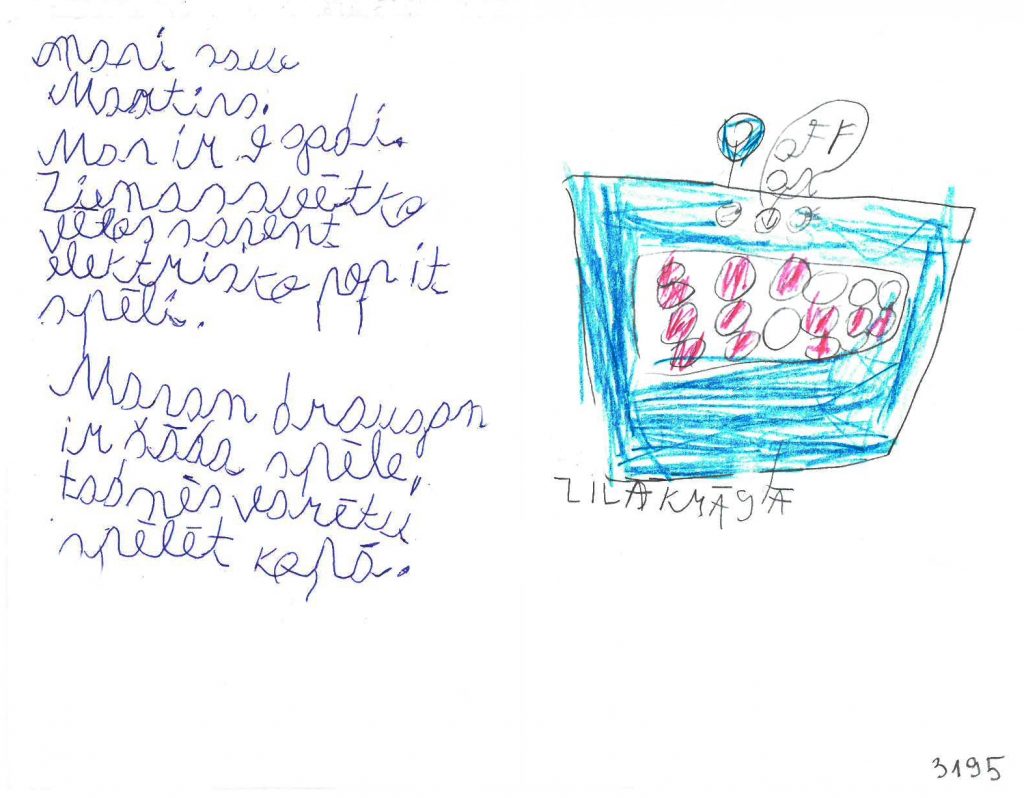 mani sauc
Martins.
Man ir 9 gadi.
Ziemassvētko
vēlos saņemt
elektrisko pop it
spēli.
Manam draugam
ir šāda spēle,
tad mēs varētu
spēlēt kopā.
OFF
ON
ZILA KRĀSĀ
3195